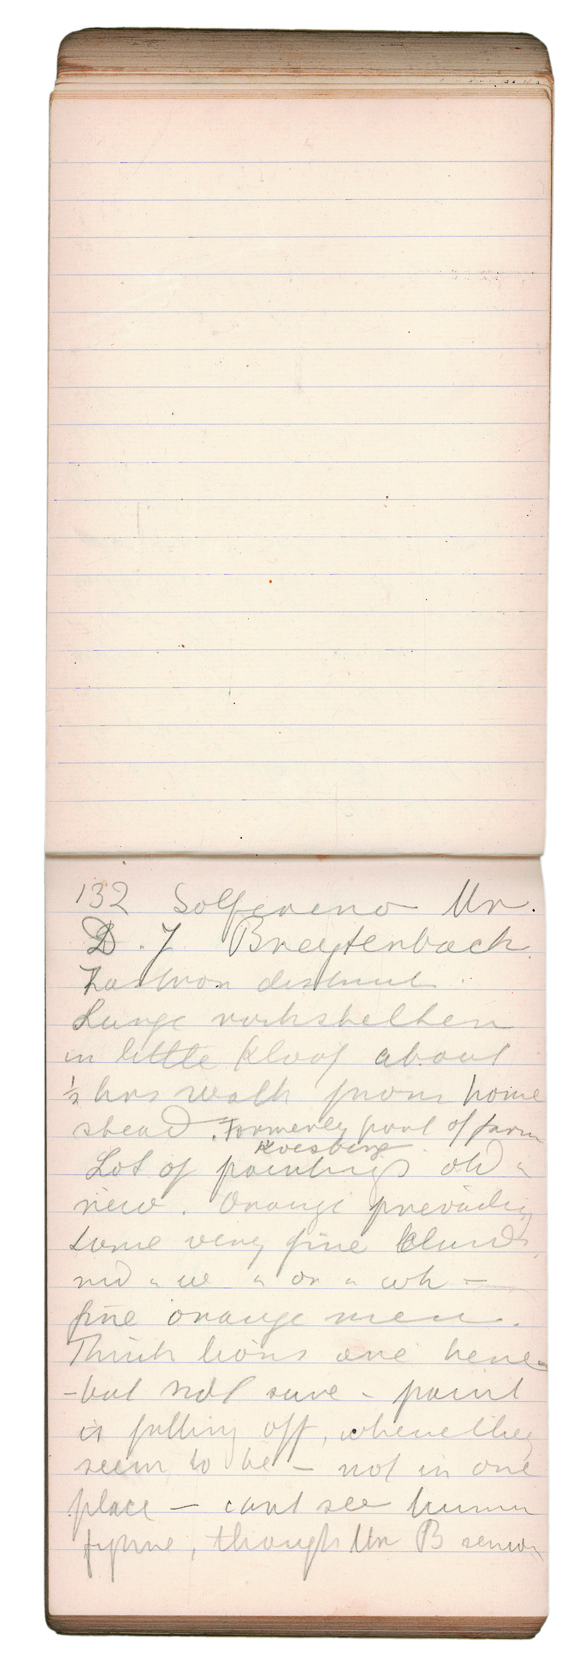 132 Solferino Mr.
D. J Breytenbach
Zastron district
Large rockshelter
in little kloof about
½ hrs walk from home
stead. Formerly part of farm
Koesberg
Lot of paintings old
new. Orange prevailing
some very fine Elands,
rd " w " or " wh —
fine orange men.
Think lions are here
- but not sure - paint
is falling off, where they
seem to be — not in one
place — cant see human
figure, though Mr B senior